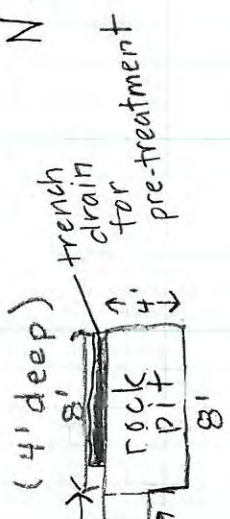 N
(4' deep)
8'
trench
drain
for
pre-treatment
rock
pit
4'
8'